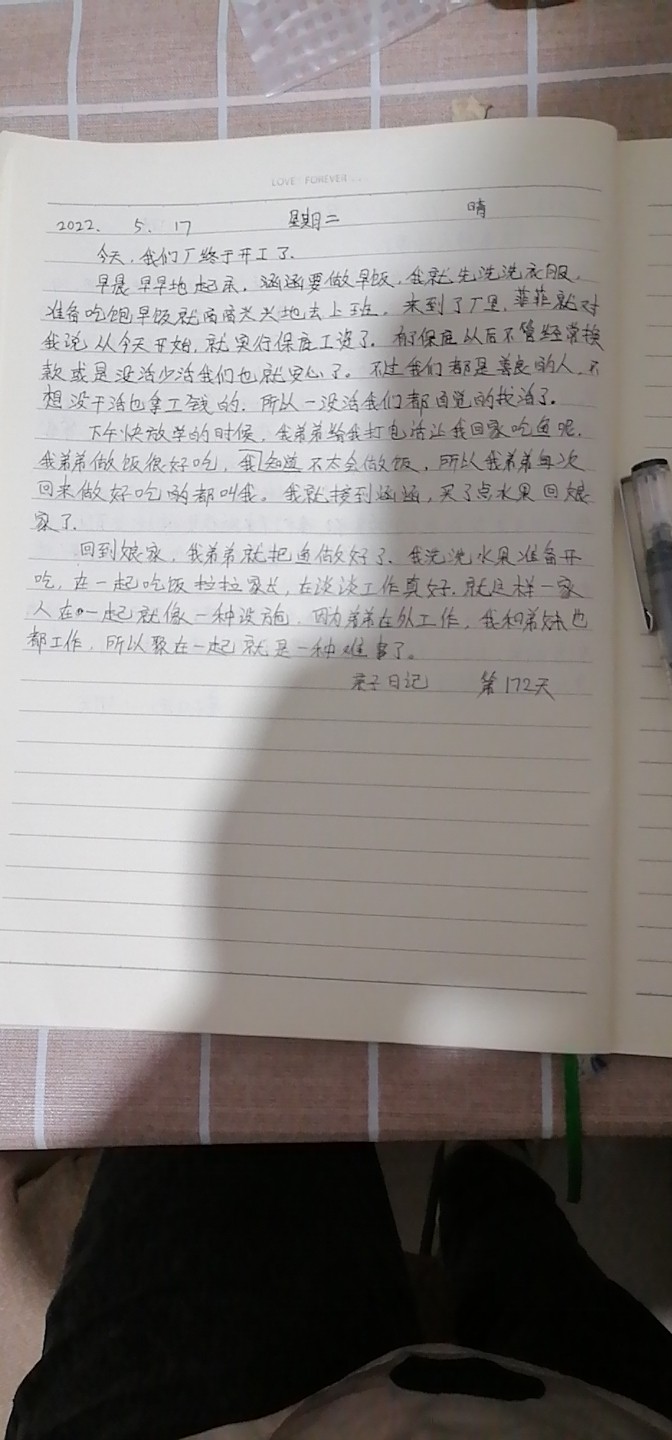 LOVE FOREVER...
2022. 5. 17 星期二 晴
今天,我们厂终于开工了.
早晨早早地起床,涵涵要做早饭,我就先洗洗衣服.
准备吃饱早饭就高高兴兴地去上班。来到了厂里,菲菲就对
我说从今天开始,就实行保底工资了.有了保底以后不管经常换
款或是没活少活我们也就安心了。不过我们都是善良的人,不
想没干活也拿工钱的.所以一没活我们都自觉的找活了.
下午快放学的时候,我弟弟给我打电话让我回家吃鱼呢.
我弟弟做饭很好吃,我知道不太会做饭,所以我弟弟每次
回来做好吃的都叫我。我就接到涵涵,买了点水果回娘
家了.
回到娘家,我弟弟就把鱼做好了.我洗洗水果准备开
吃,在一起吃饭拉拉家长,在谈谈工作真好.就这样一家
人在一起就像一种设施,因为弟弟在外工作,我和弟妹也
都工作,所以聚在一起就是一种难事了。
亲子日记 第172天